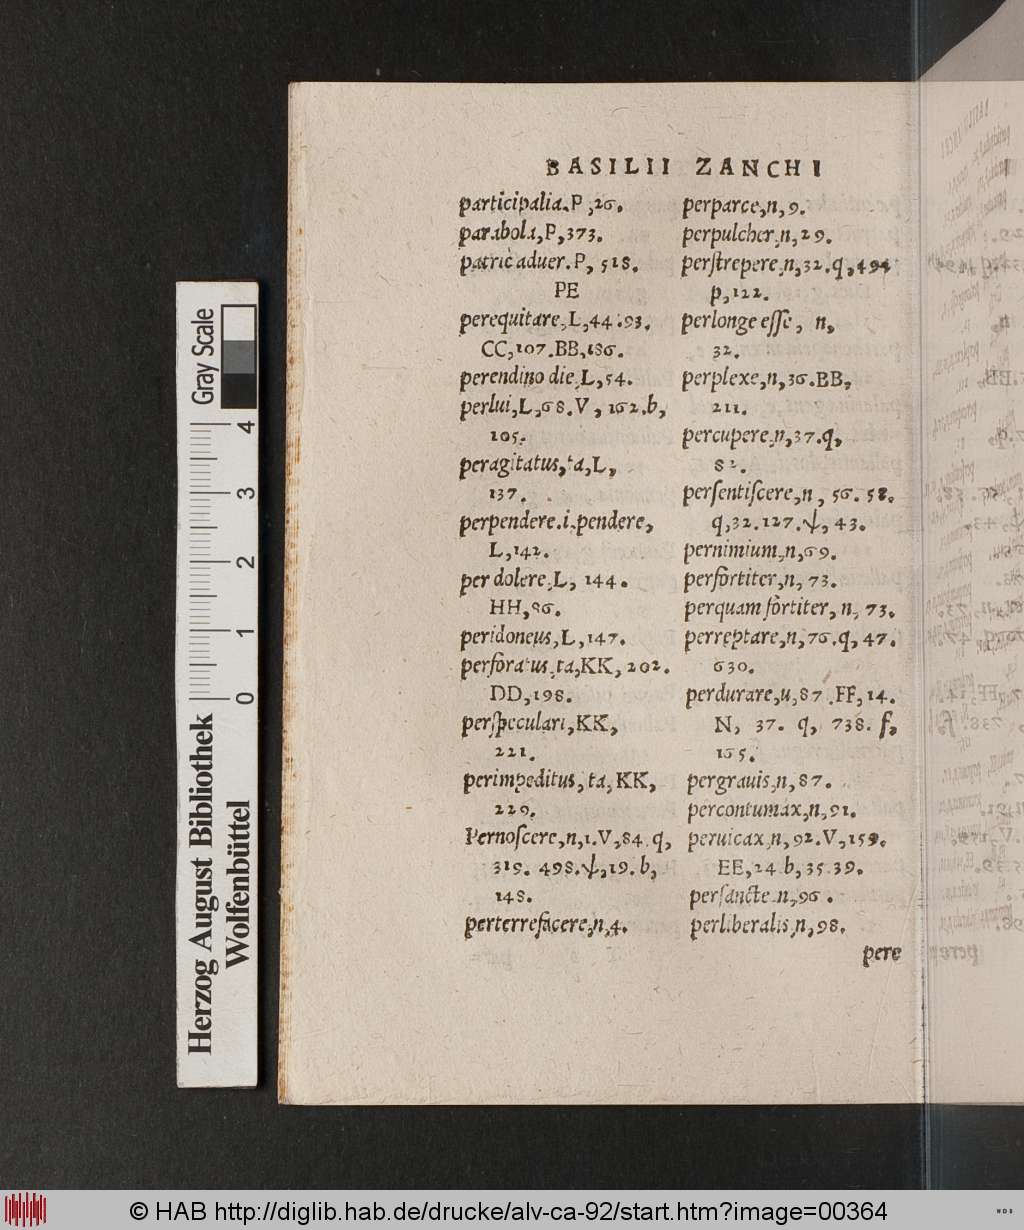 BASILII ZANCHI
participalia.P,26.
parabola,P,373.
patriè aduer.P, 518.
PE
perequitare,L,44.93.
CC,107.BB,186.
perendino die,L,54.
perlui,L,68.V, 162.b,
105.
peragitatus,ta,L,
137.
perpendere.i.pendere,
L,142.
per dolere,L, 144.
HH,86.
peridoneus,L,147.
perforatus,ta,KK,202.
DD,198.
perspeculari,KK,
221.
perimpeditus,ta,KK,
229.
Pernoscere,n,1.V,84.q,
319. 498.ψ,19.b,
148.
perterrefacere,n,4.
perparce,n,9.
perpulcher,n,29.
perstrepere,n,32.q,494
p,122.
perlonge esse, n,
32.
perplexe,n,36.BB,
211.
percupere,n,37.q,
82.
persentiscere,n, 56. 58.
q,32.127.ψ, 43.
pernimium,n,69.
perfortiter,n, 73.
perquam fortiter, n, 73.
perreptare,n,76.q, 47.
630.
perdurare,u,87.FF,14.
N, 37. q, 738. f,
165.
pergrauis,n,87.
percontumax,n,91.
peruicax,n,92.V,159.
EE,24.b,35.39.
persancte.n,96.
perliberalis,n,98.
pere
Gray Scale
4
3
2
1
0
Herzog August Bibliothek
Wolfenbüttel
© HAB http://diglib.hab.de/drucke/alv-ca-92/start.htm?image=00364